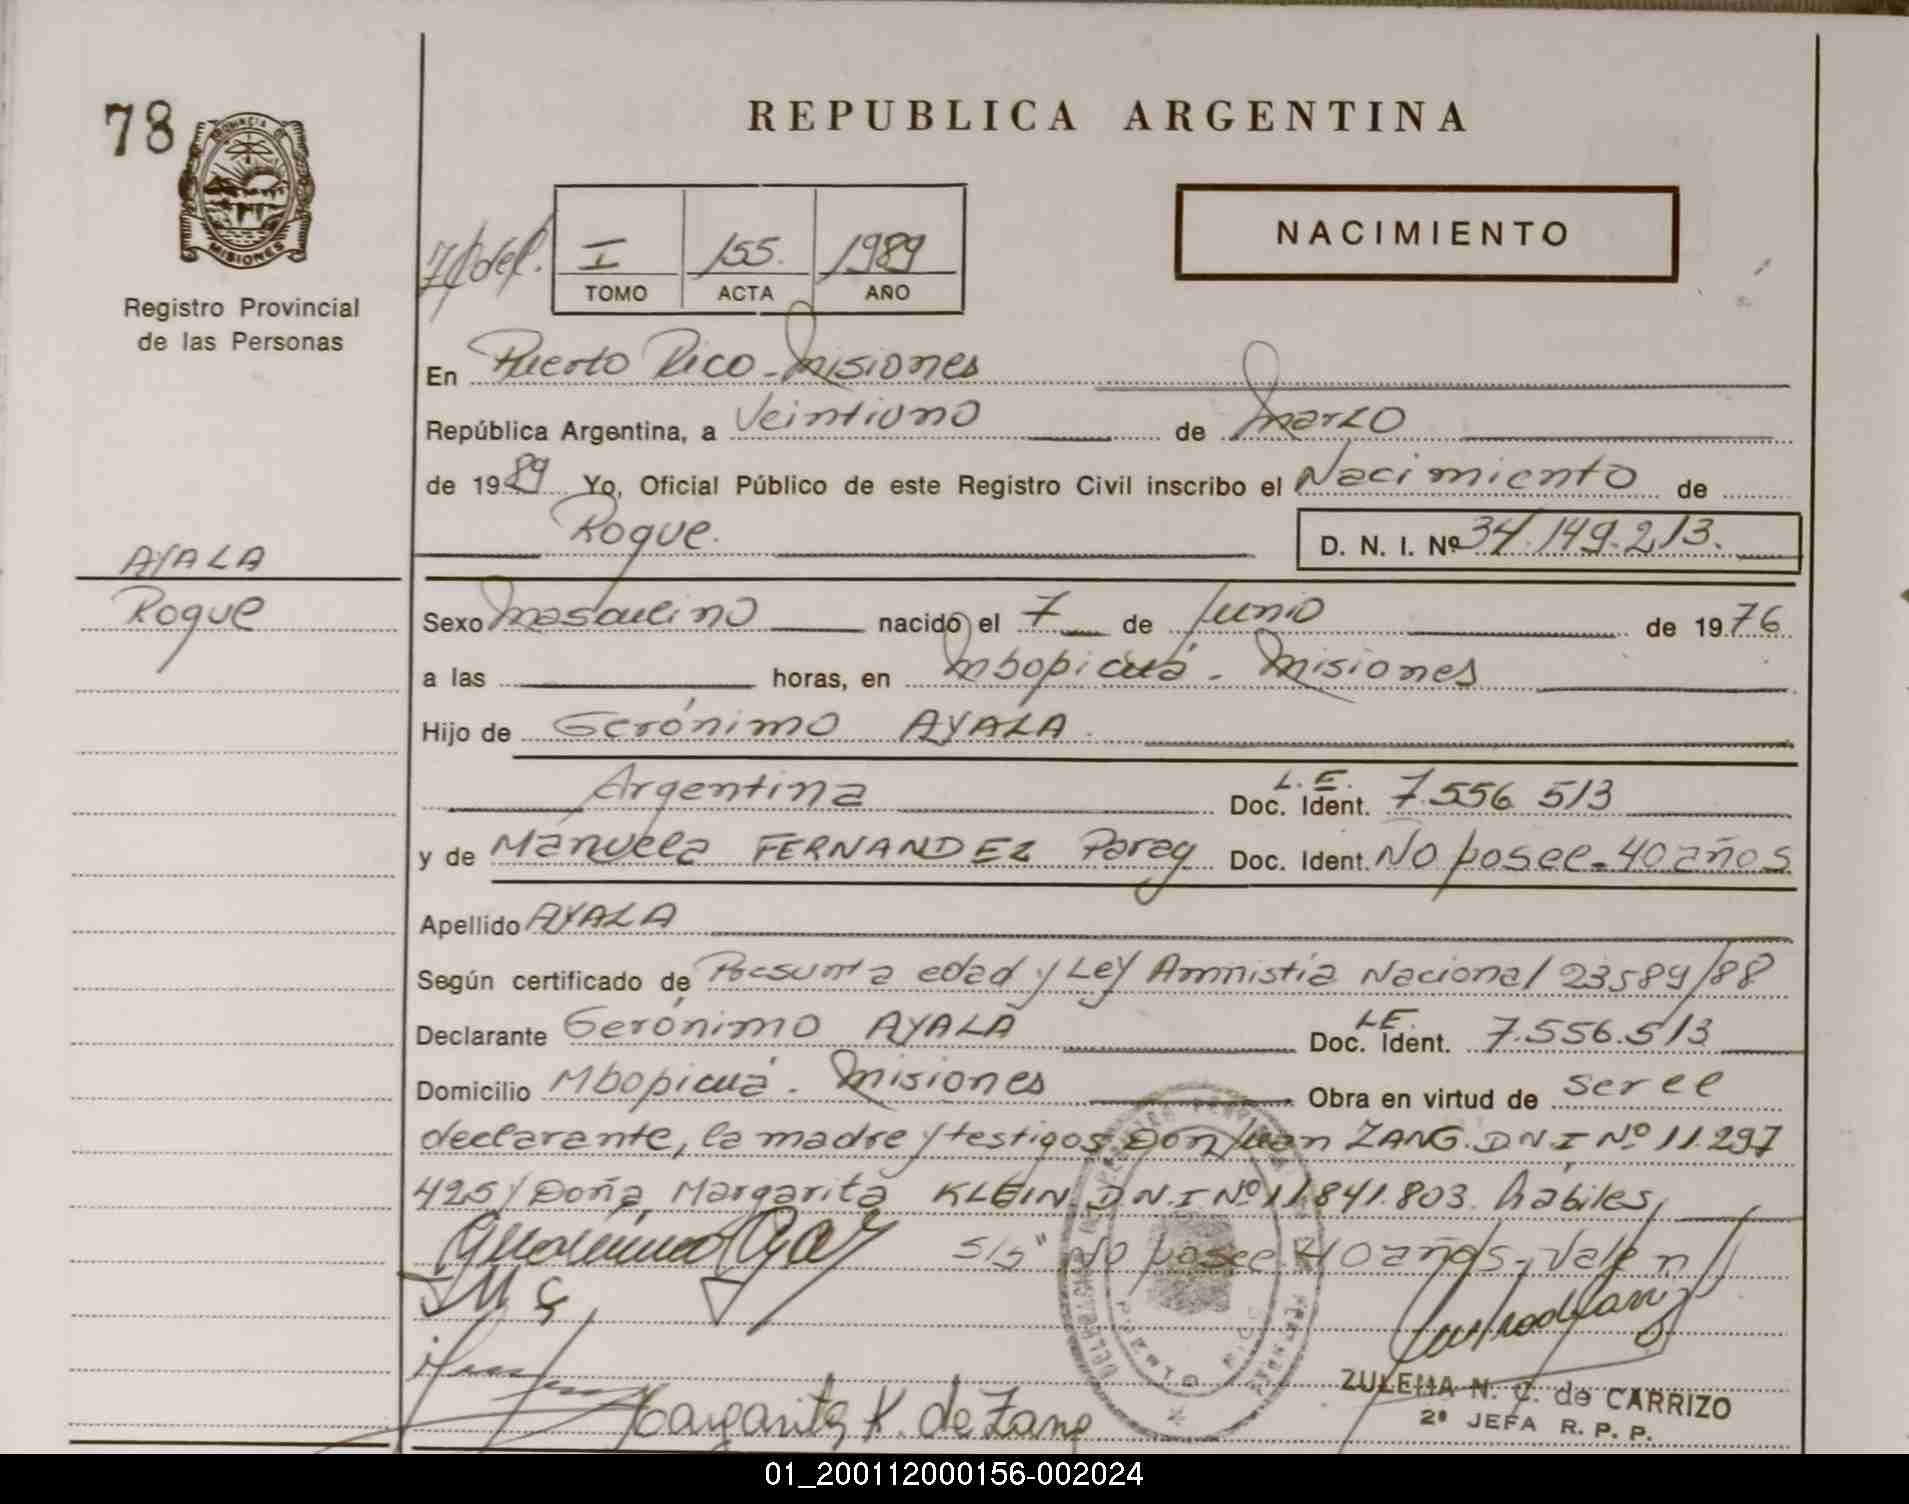 78
PROVINCIA DE
MISIONES
Registro Provincial
de las Personas
REPUBLICA ARGENTINA
I 155. 1989
TOMO ACTA AÑO
NACIMIENTO
En Puerto Rico - Misiones
República Argentina, a Veintiuno de Marzo
de 1989 Yo, Oficial Público de este Registro Civil inscribo el Nacimiento de
Roque. D. N. I. Nº 34.149.213.
AYALA
Roque
Sexo Masculino nacido el 7 de Junio de 1976
a las horas, en Mbopicuá - Misiones
Hijo de Gerónimo AYALA.
Argentina L.E. Doc. Ident. 7.556 513
y de Manuela FERNANDEZ Parag Doc. Ident. No posee - 40 años
Apellido AYALA
Según certificado de Presunta edad y Ley Amnistía Nacional 23589/88
Declarante Gerónimo AYALA L.E. Doc. Ident. 7.556.513
Domicilio Mbopicuá - Misiones Obra en virtud de ser el
declarante, la madre y testigos Don Juan ZANG. D N I Nº 11.297
425 y Doña Margarita KLEIN D.N.I Nº 11.841.803. hábiles,
S/S" No posee 40 años - Valen
Margarita K. de Zang
ZULEMA N. C. de CARRIZO
2ª JEFA R. P. P.
01_200112000156-002024